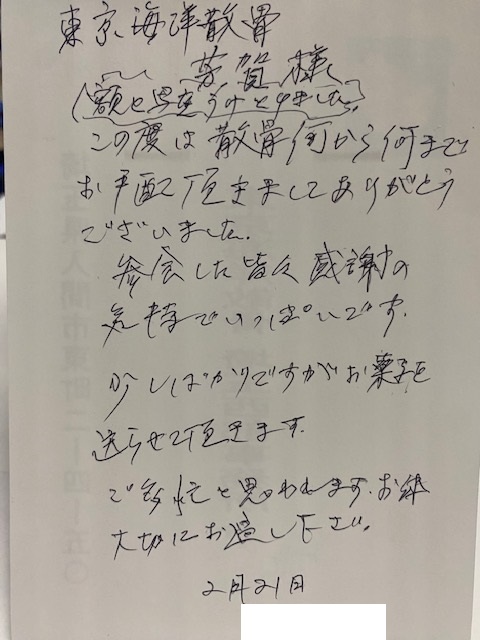 東京海洋散骨
芳賀様
(額と写真うけとりました。)
この度は散骨何から何まで
お手配頂きましてありがとう
ございました.
参会した皆々感謝の
気持でいっぱいです.
少しばかりですがお菓子を
送らせて頂きます.
ご多忙と思われます.お体
大切にお過し下さい。
2月21日